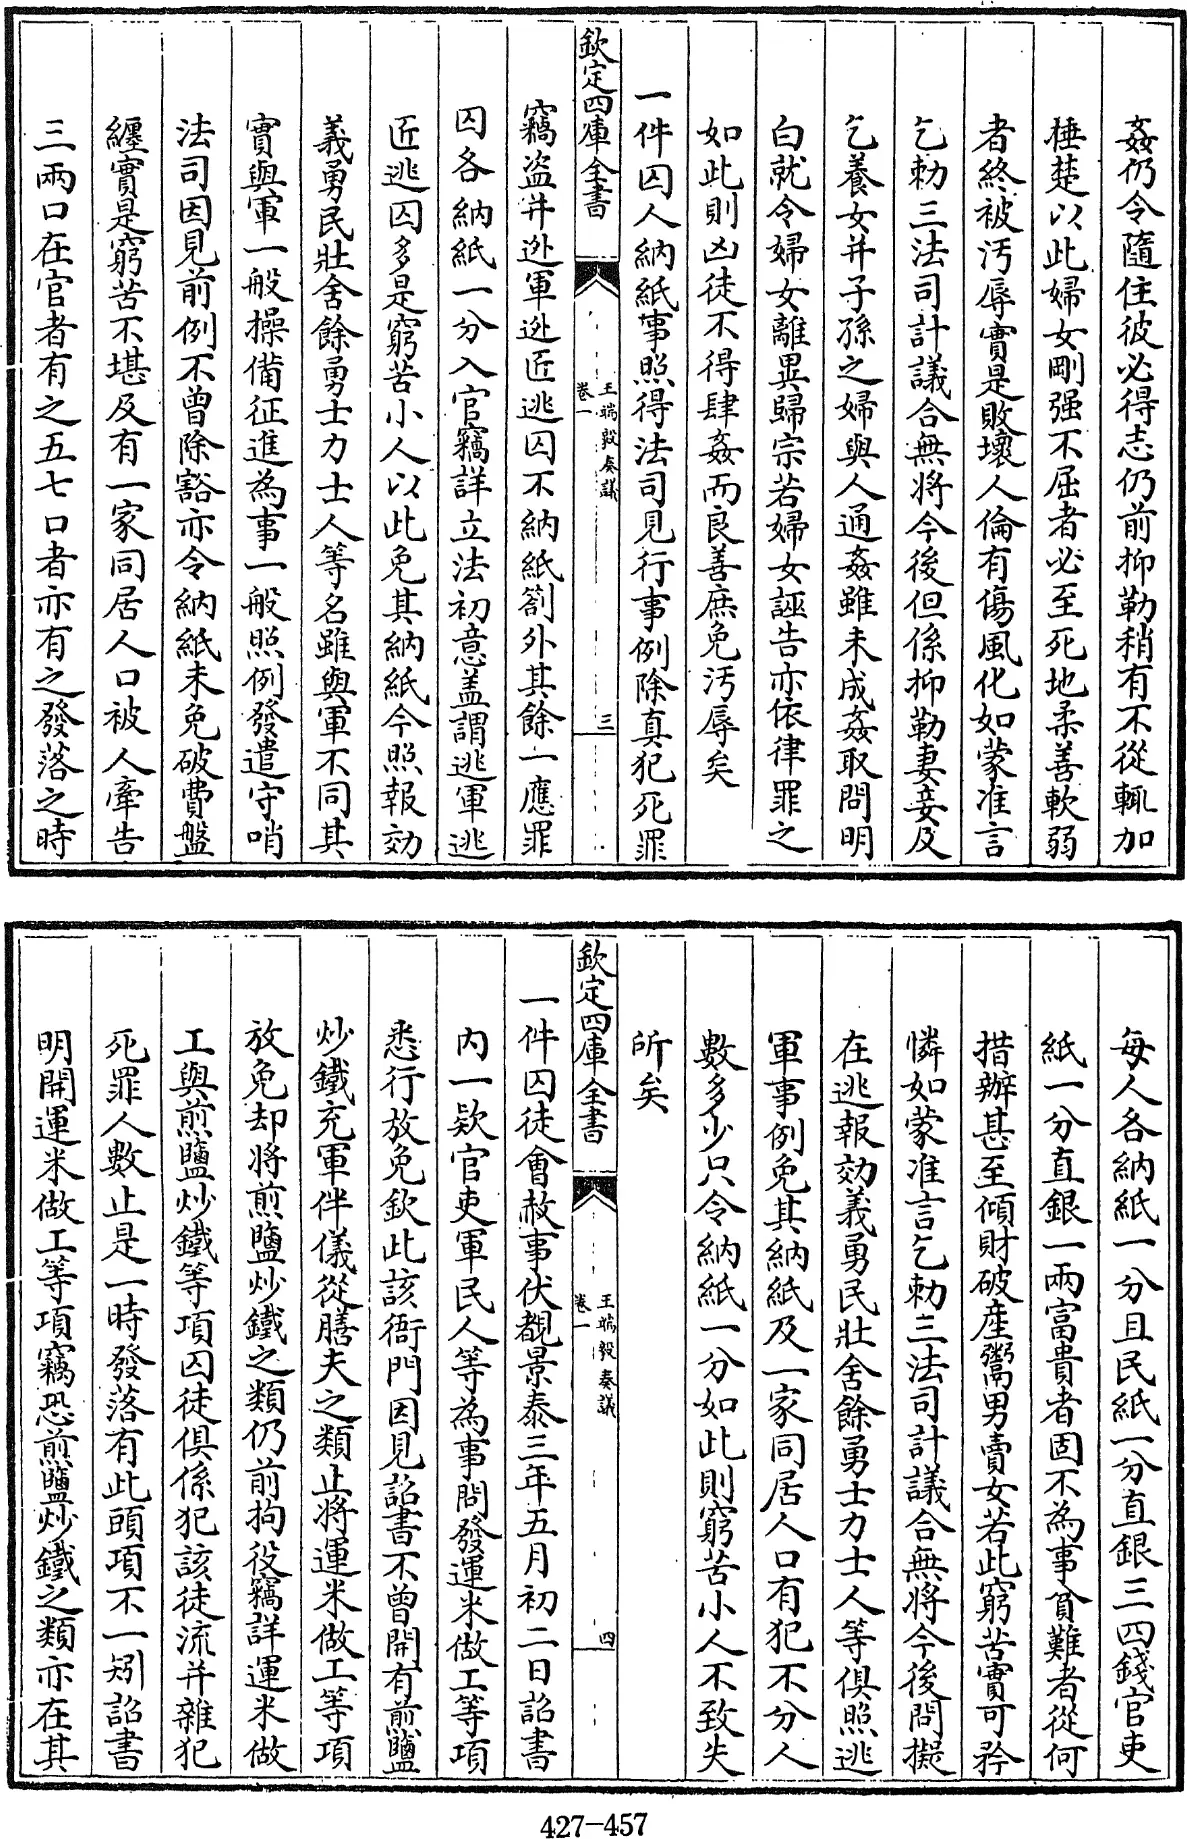 姦仍令隨住彼必得志仍前抑勒稍有不從輒加
棰楚以此婦女剛强不屈者必至死地柔善軟弱
者終被汚辱實是敗壞人倫有傷風化如蒙准言
乞勅三法司計議合無將今後但係抑勒妻妾及
乞養女并子孫之婦與人通姦雖未成姦取問明
白就令婦女離異歸宗若婦女誣告亦依律罪之
如此則凶徒不得肆姦而良善庶免汚辱矣
一件囚人納紙事照得法司見行事例除真犯死罪
欽定四庫全書
王端毅奏議
卷一
三
竊盜并逃軍逃匠逃囚不納紙劄外其餘一應罪
囚各納紙一分入官竊詳立法初意盖謂逃軍逃
匠逃囚多是窮苦小人以此免其納紙今照報効
義勇民壯舍餘勇士力士人等名雖與軍不同其
實與軍一般操備征進為事一般照例發遣守哨
法司因見前例不曾除豁亦令納紙未免破費盤
纏實是窮苦不堪及有一家同居人口被人牽告
三兩口在官者有之五七口者亦有之發落之時
每人各納紙一分且民紙一分直銀三四錢官吏
紙一分直銀一兩富貴者固不為事貧難者從何
措辦甚至傾財破産鬻男賣女若此窮苦實可矜
憐如蒙准言乞勅三法司計議合無將今後問擬
在逃報効義勇民壯舍餘勇士力士人等俱照逃
軍事例免其納紙及一家同居人口有犯不分人
數多少只令納紙一分如此則窮苦小人不致失
所矣
欽定四庫全書
王端毅奏議
卷一
四
一件囚徒會赦事伏覩景泰三年五月初二日詔書
内一欵官吏軍民人等為事問發運米做工等項
悉行放免欽此該衙門因見詔書不曾開有煎鹽
炒鐵充軍伴儀從膳夫之類止將運米做工等項
放免却將煎鹽炒鐵之類仍前拘役竊詳運米做
工與煎鹽炒鐵等項囚徒俱係犯該徒流并雜犯
死罪人數止是一時發落有此頭項不一矧詔書
明開運米做工等項竊恐煎鹽炒鐵之類亦在其
427-457